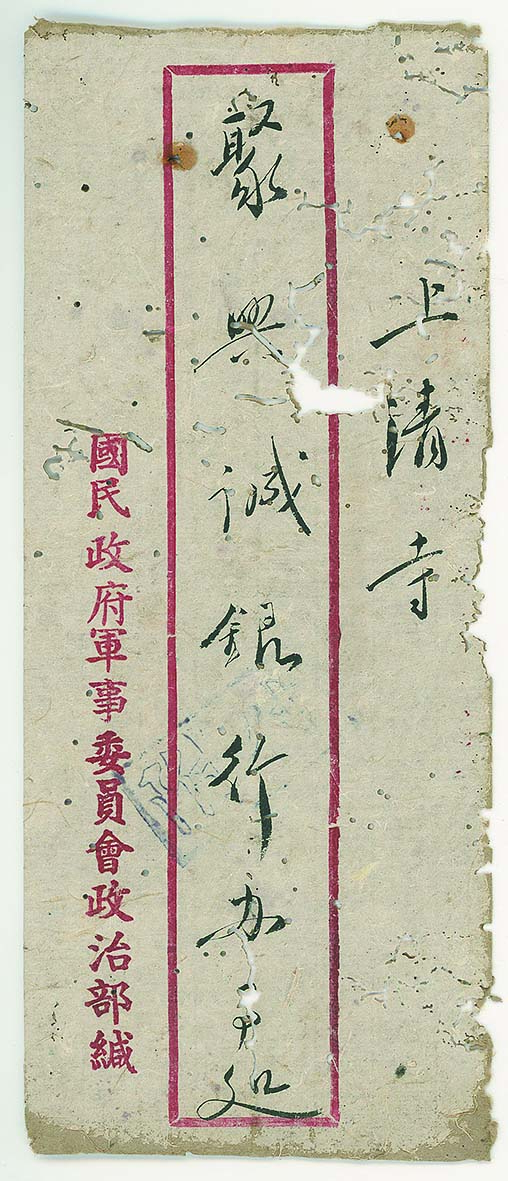 上清寺
聚興誠銀行办事処
國民政府軍事委員會政治部緘